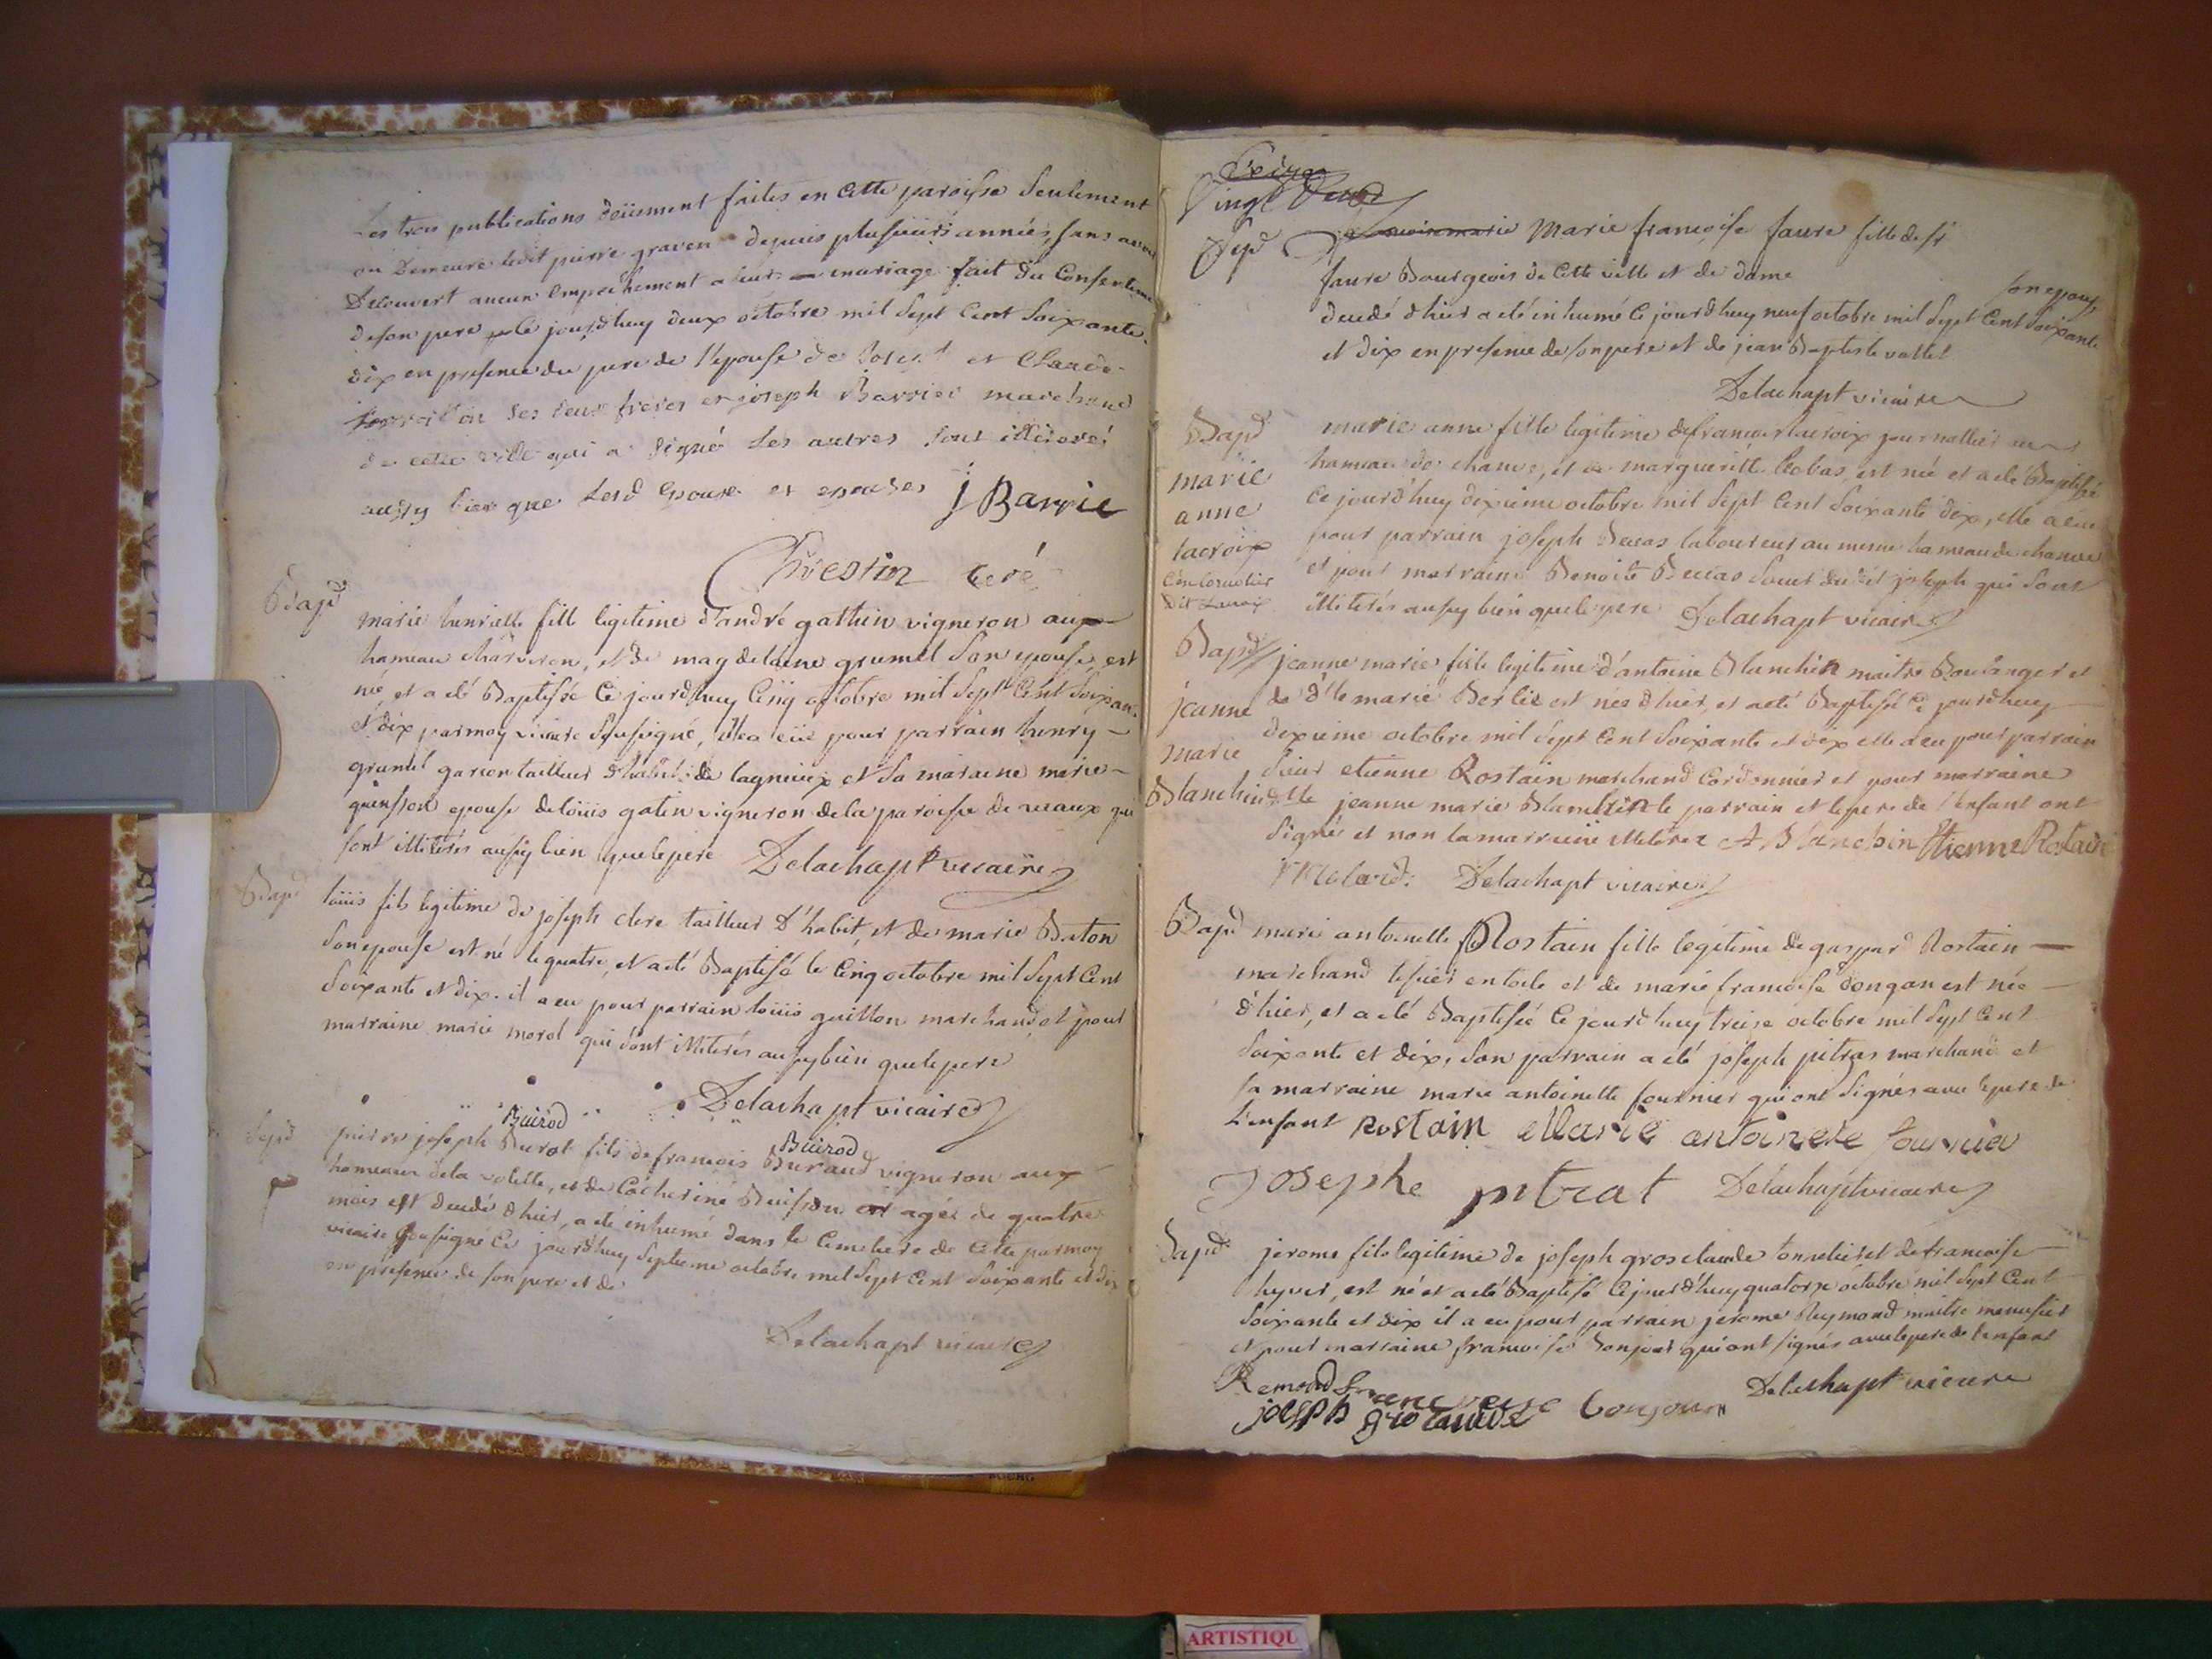 Les trois publications deüement faites en Cette paroisse Seulement
ou Demeure ledit pierre graven depuis plusieurs années, sans avoir
Decouvert aucun Empechement a leur mariage fait du Consentement
de son pere Ce jourdhuy deux octobre mil Sept Cent Soixante
dix en presence du pere de l'epouse de et Claude
ses deux freres et joseph Barrier marchand
de cette ville qui a signé Les autres sont illiterés
aussy bien que Lesd Epoux et epouses J Barrie
Curé
Bapd marie henriette fille legitime d'andré gathin vigneron au
hameau charveron, et de magdelaine grumel Son epouse, est
né, et a eté Baptisée Ce jourdhuy Cinq octobre mil Sept Cent Soixan
et dix par moy vicaire Soussigné, Elle a eüe pour parrain henry
grumel garcon tailleur d'habit de lagnieux et Sa maraine marie
epouse de loüis gatin vigneron de la paroisse de vaux qui
sont illiterés aussy bien que le pere Delachapt vicaire
Bapd loüis fils legitime de joseph clere tailleur d'habit, et de marie Baton
Son epouse est né le quatre, et a eté Baptisé le Cinq octobre mil Sept Cent
Soixante et dix. il a eu pour parrain loüis guillon marchand et pour
marraine marie morel qui Sont illiterés aussy bien que le pere
Delachapt vicaire
Buirod Buirod
Sepd pierre joseph Burot fils de francois Buraud vigneron aux
hameaux de la volette, et de Catherine Buisson agé de quatre
mois est decedé d'hier, a eté inhumé dans le Cimetiere de Cette par moy
vicaire Soussigné Ce jourdhuy Septieme octobre mil Sept Cent Soixante et dix
en presence de son pere et de
Delachapt vicaire
Vingt Deux
Sepd Marie francoise faure fille de Sr
faure Bourgeois de Cette ville et de dame
son epouse
decedé d'hier a eté inhumé Ce jourdhuy neuf octobre mil Sept Cent Soixante
et dix en presence de son pere et de jean Baptiste vallet
Delachapt vicaire
Bapd
marie
anne
lacroix
Dit Lacroix
marie anne fille legitime de francois lacroix journallier au
hameau de chanve, et de margueritte est né et a eté Baptisé
Ce jourdhuy dixieme octobre mil Sept Cent Soixante dix, elle a eue
pour parrain joseph Decas laboureur au mesme hameau de chanve
et pour marraine Benoite Deccas Soeur dudit joseph qui Sont
illiterés aussy bien que le pere Delachapt vicaire
Bapd
jeanne
marie
Blanchin
jeanne marie fille legitime d'antoine Blanchin maitre Boulanger et
de dlle marie Berlie est née d'hier, et a eté Baptisé Ce jourdhuy
dixieme octobre mil Sept Cent Soixante et dix elle a eu pour parrain
Sieur etienne Rostain marchand Cordonnier et pour marraine
dlle jeanne marie Blanchin le parrain et le pere de l'enfant ont
Signés et non la marraine illiterée A Blanchin Etienne Rostain
Delachapt vicaire
Bapd marie antoinette Rostain fille legitime de gaspard Rostain
marchand tissier en toile et de marie francoise dongan est née
d'hier, et a eté Baptisée Ce jourdhuy treise octobre mil Sept Cent
Soixante et dix, Son parrain a eté joseph pitras marchand et
sa marraine marie antoinette fournier qui ont Signés avec le pere de
l'enfant Rostain Marie antoinete fournier
Josephe pitrat Delachapt vicaire
Bapd. jerome fils legitime de joseph grosclaude tonnelier et de francoise
hyver, est né et a eté Baptisé Ce jourd'huy quatorze octobre mil Sept Cent
Soixante et dix il a eu pour parrain jerome Reymond maitre menusier
et pour marraine francoise Bonjour qui ont signés avec le pere de l'enfant
Remond
Delachapt vicaire
joseph bonjour
ARTISTIQU